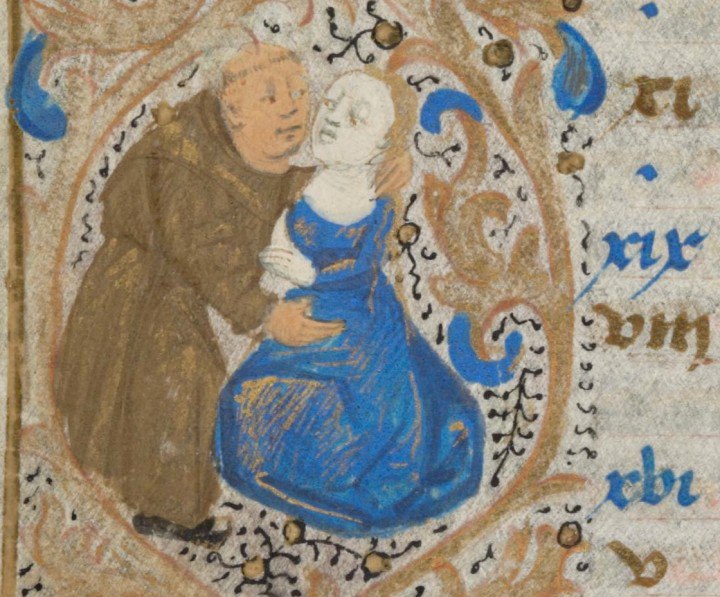 xi
xix
viii
xvi
v